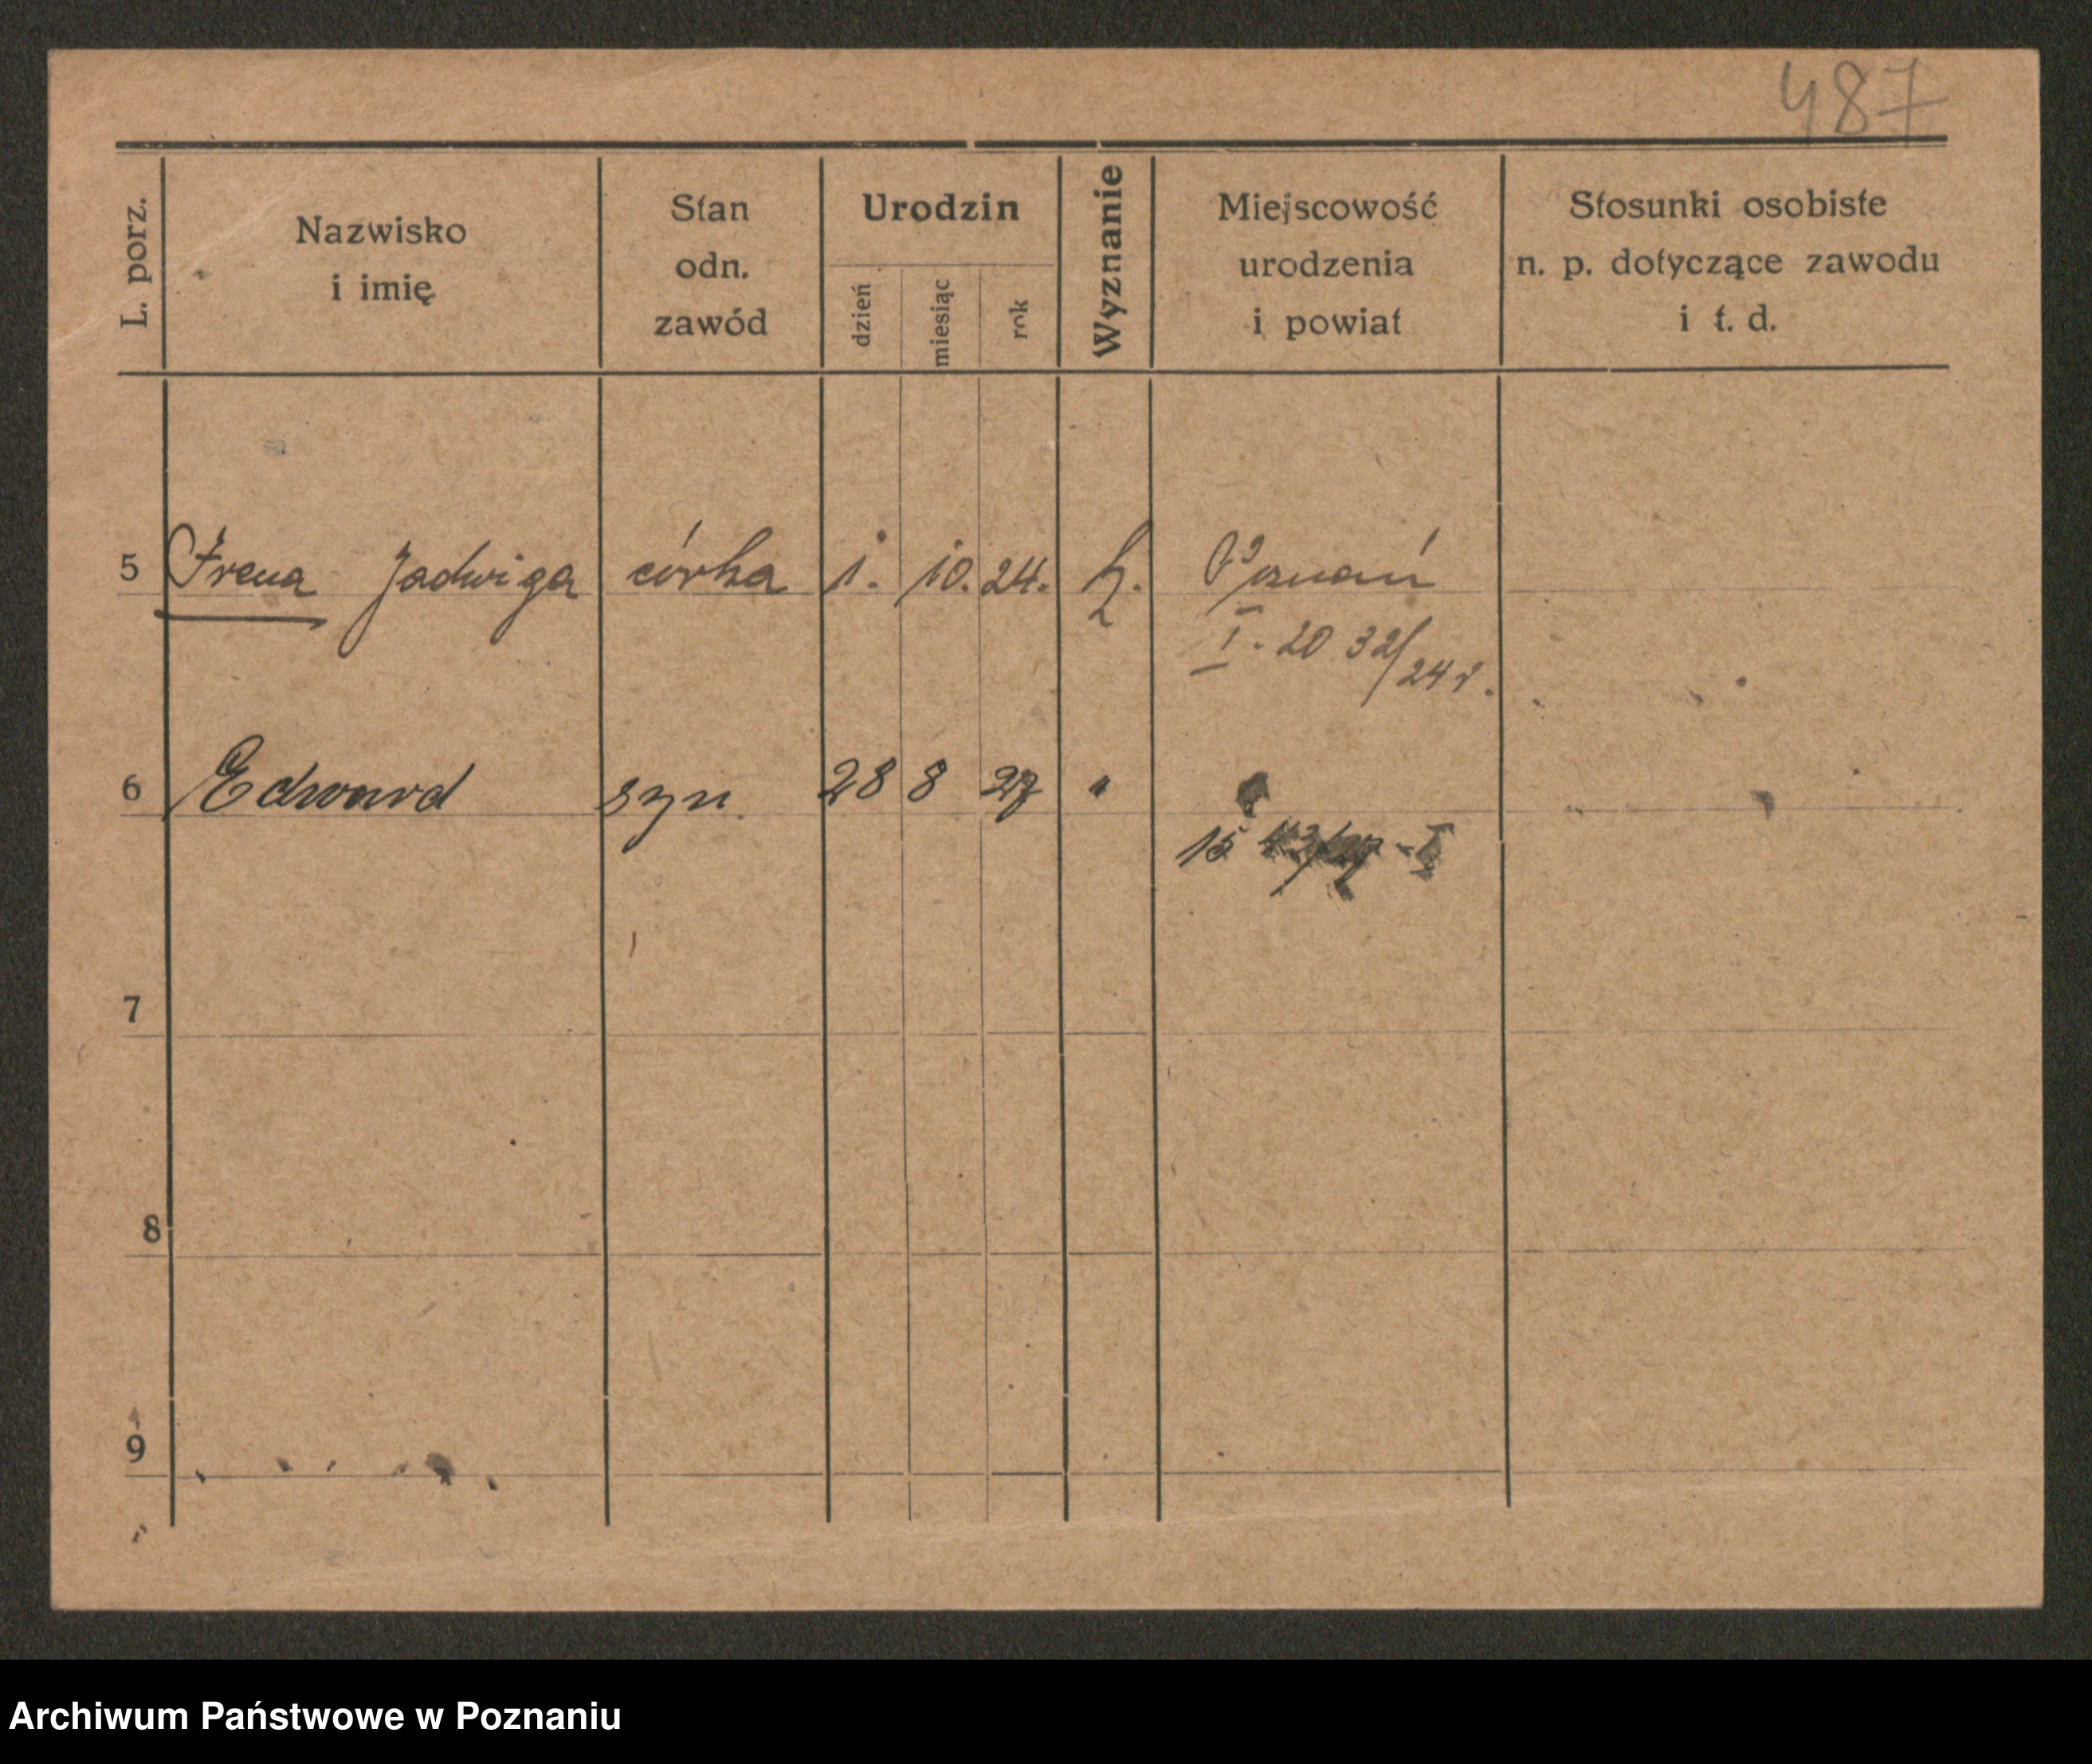 487
L. porz.
Nazwisko
i imię
Stan
odn.
zawód
Urodzin
dzień
miesiąc
rok
Wyznanie
Miejscowość
urodzenia
i powiat
Stosunki osobiste
n. p. dotyczące zawodu
i t. d.
5 Irena Jadwiga córka 1. 10. 24. k. Poznań
I. 20 32/24 r.
6 Edward syn 28 8 27 "
15 - I
7
8
9
Archiwum Państwowe w Poznaniu